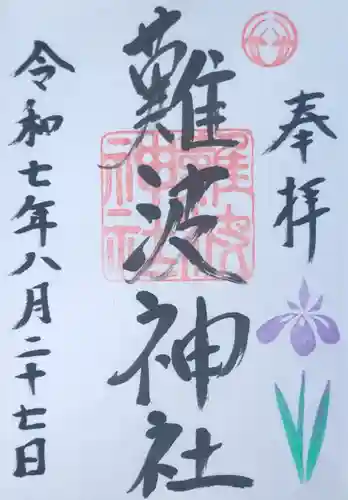 奉拝
難波神社
令和七年八月二十七日
難波神社